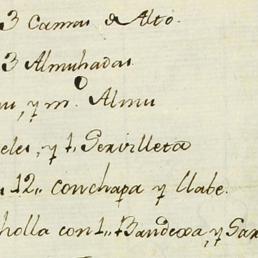 3 Camas de Alto.
3 Almuhadas
y m.º Almu
eles, y 1, Servilleta
12,, conchapa y llabe.
holla con 1,, Bandexa, y Gar